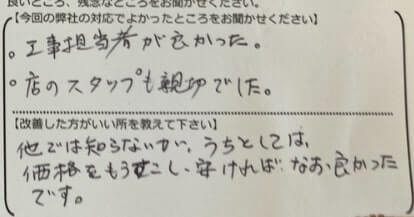 良いところ、残念なところをお聞かせください。
【今回の弊社の対応でよかったところをお聞かせください】
。工事担当者が良かった。
。店のスタッフも親切でした。
【改善した方がいい所を教えて下さい】
他では知らないが、うちとしては、
価格をもうすこし安ければなお良かった
です。